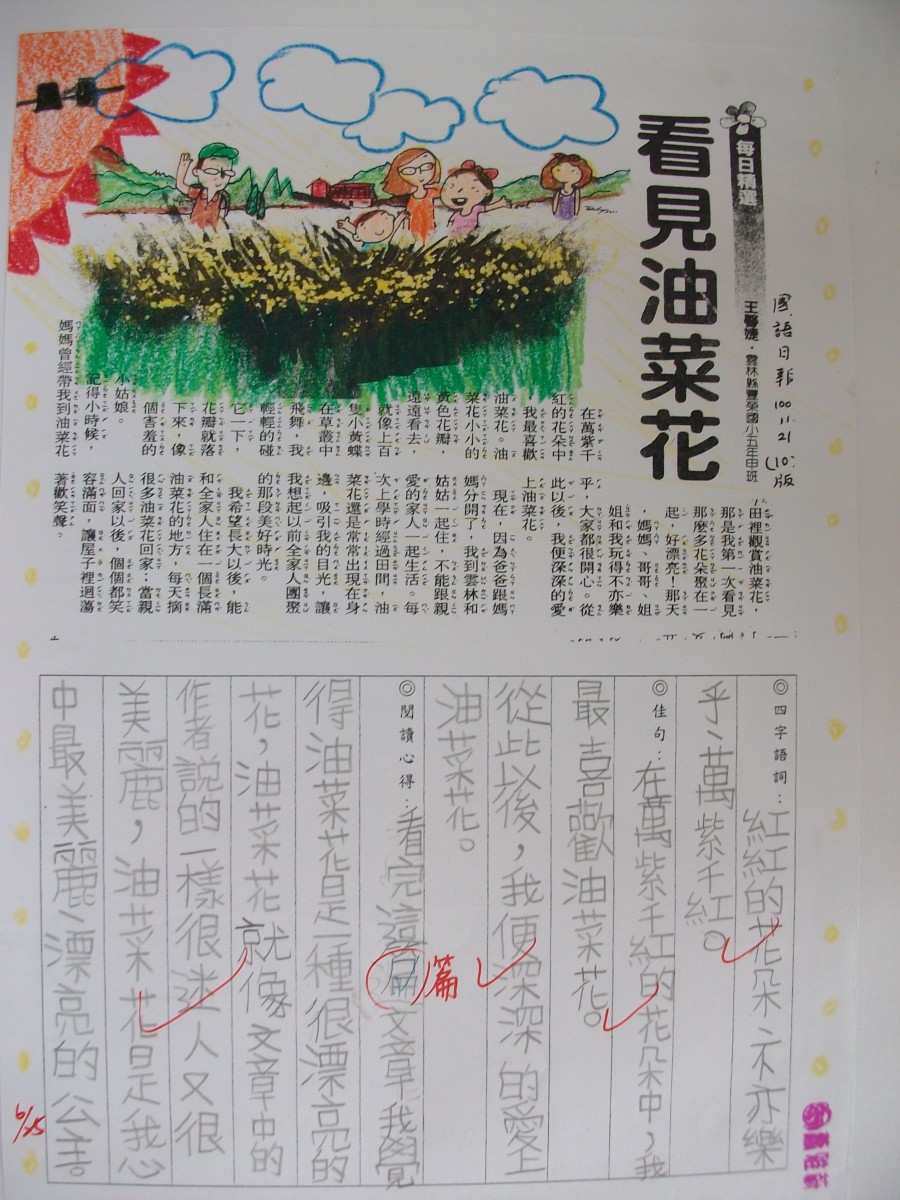 國語日報 100.11.21 (10)版
每日精選
看見油菜花
雲林縣豐榮國小五年甲班
在萬紫千
紅的花朵中
，我最喜歡
油菜花。油
菜花小小的
黃色花瓣，
遠遠看去，
就像上百
隻小黃蝶
在草叢中
飛舞，我
輕輕的碰
它一下，
花瓣就落
下來，像
個害羞的
小姑娘。
記得小時候，
媽媽曾經帶我到油菜花
田裡觀賞油菜花，
那是我第一次看見
那麼多花朵聚在一
起，好漂亮！那天
，媽媽、哥哥、姐
姐和我玩得不亦樂
乎，大家都很開心。從
此以後，我便深深的愛
上油菜花。
現在，因為爸爸跟媽
媽分開了，我到雲林和
姑姑一起住，不能跟親
愛的家人一起生活。每
次上學時經過田間，油
菜花還是常常出現在身
邊，吸引我的目光，讓
我想起以前全家人團聚
的那段美好時光。
我希望長大以後，能
和全家人住在一個長滿
油菜花的地方，每天摘
很多油菜花回家；當親
人回家以後，個個都笑
容滿面，讓屋子裡迴蕩
著歡笑聲。
◎四字語詞：紅紅的花朵、不亦樂
乎、萬紫千紅。
◎佳句：在萬紫千紅的花朵中，我
最喜歡油菜花。
從此以後，我便深深的愛上
油菜花。
◎閱讀心得：看完這篇文章我覺
篇
得油菜花是一種很漂亮的
花，油菜花就像文章中的
作者說的一樣很迷人又很
美麗，油菜花是我心
中最美麗、漂亮的公主。
6/25